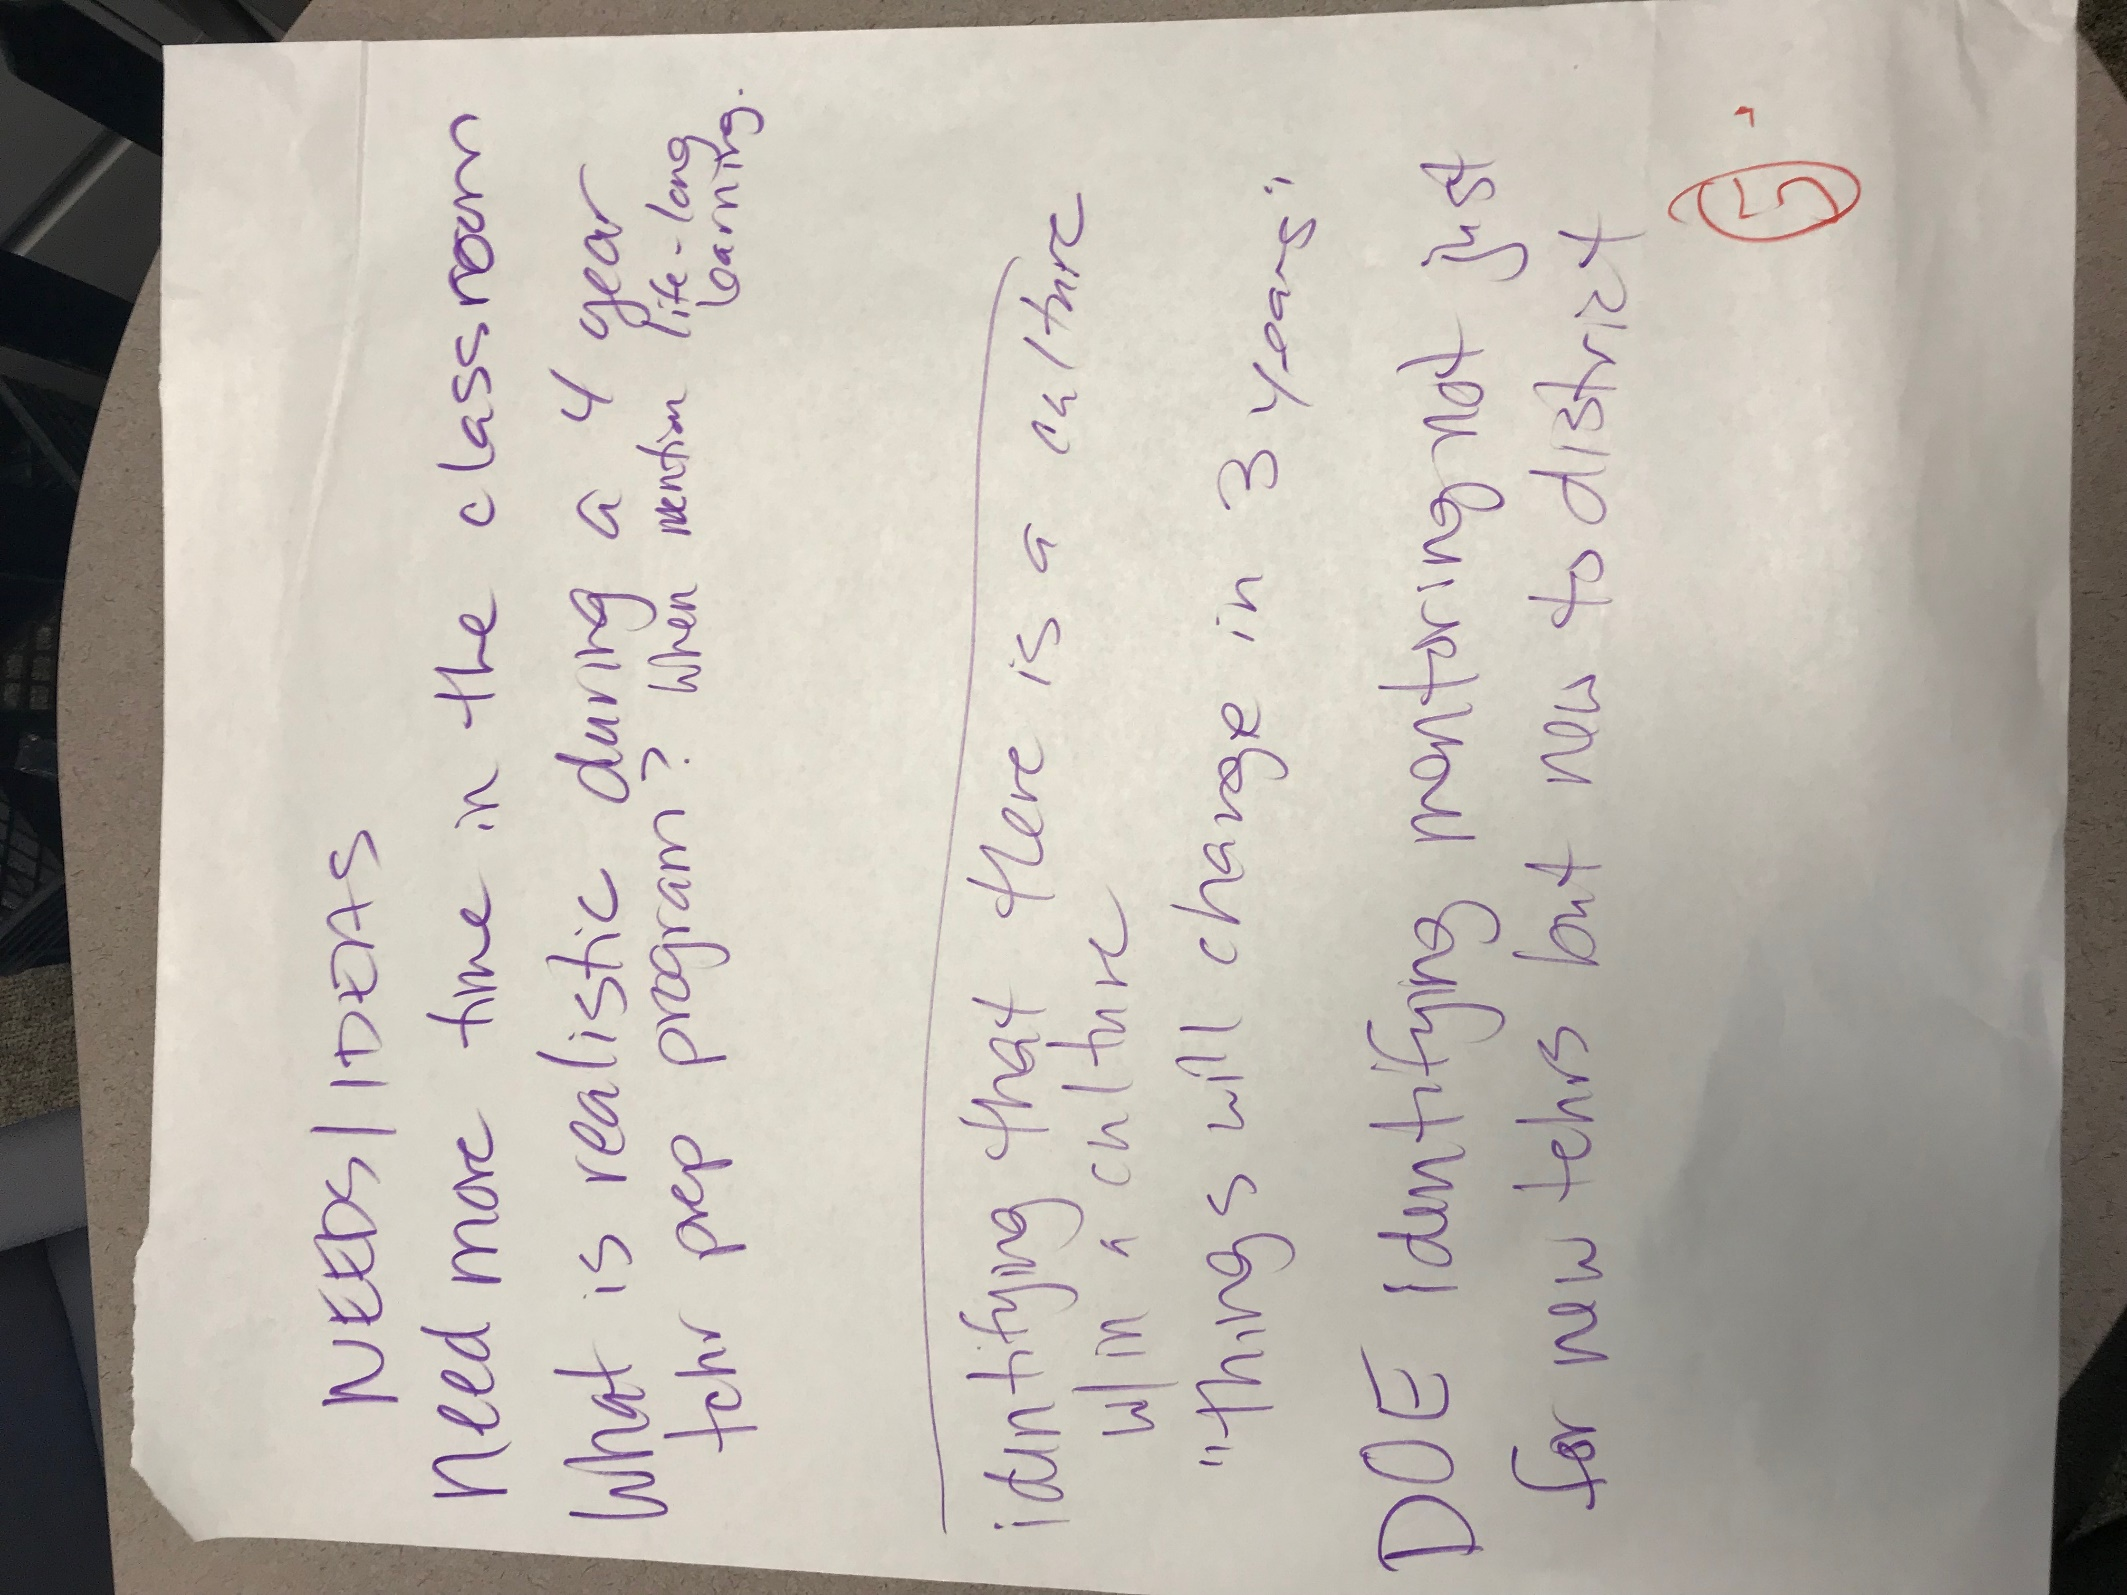 NEEDS/IDEAS
Need more time in the classroom
What is realistic during a 4 year
tchr prep program? When mention life-long
learning.
identifying that there is a culture
w/in a culture
"things will change in 3 years"
DOE Identifying mentoring not just
for new tchrs but new to district
5